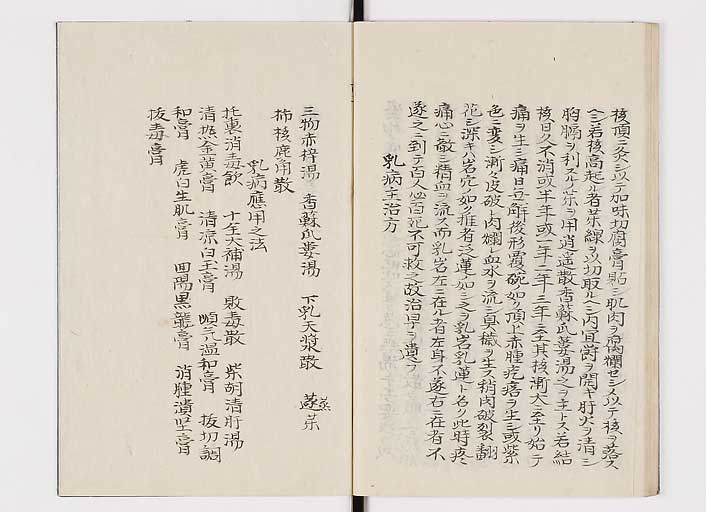 核頂ニ灸シ以テ加味切腐膏貼シ肌肉ヲ腐爛セシメ以テ核ヲ落ス
ヘシ若核高起ル者茱線ヲ以切取ルヘシ内宜欝ヲ開キ肝火ヲ清シ
胸膈ヲ利スルノ茱ヲ用逍遥散香蘇瓜蔞湯之ヲ主トス若結
核日久不消或半年或一年二年三年ニ至其核漸大ニ至リ始テ
痛ヲ生シ痛日五解後形覆碗ノ如ク頂上赤腫疙瘩ヲ生シ或紫
色ニ変シ漸々皮破レ肉爛レ血水ヲ流シ臭穢ヲ生ス稍肉破裂翻
花シ深キハ岩穴ノ如ク堆者泛蓮ノ如シ之ヲ乳岩乳蓮ト名ク此時疼
痛心ニ徹シ精血ヲ流ス而乳岩左ニ在ル者左身不遂右ニ在者右不
遂之ニ到テ百人必百死不可救之故治早ヲ貴フ
乳病主治方
三物赤梓湯 香蘇瓜蔞湯 下乳天漿散 蒸遂茱
柿核鹿角散
乳病應用之法
托裏消毒飲 十全大補湯 敗毒散 柴胡清肝湯
清熱金黄膏 清凉白玉膏 順気温和膏 抜切調
和膏 虎白生肌膏 回陽黒龍膏 消腫潰堅膏
抜毒膏